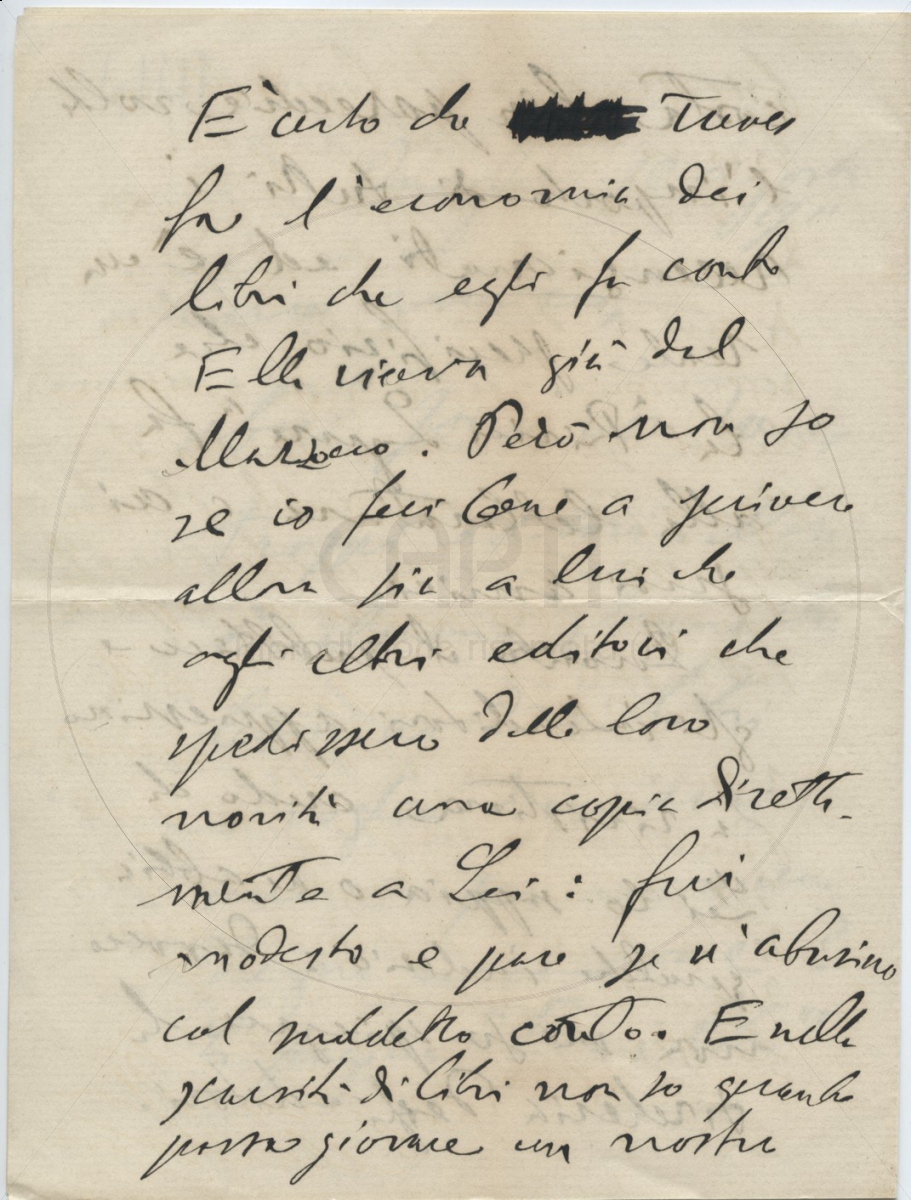 E' certo che Treves
fa l'economia dei
libri che egli sa conto
Ella riceva già dal
Marzocco. Però non so
se io feci bene a scrivere
allora più a lui che
agli altri editori che
spedissero delle loro
novità una copia diretta-
mente a Lei: fui
modesto e pare se n'abusino
col suddetto conto. E nella
scarsità di libri non so quanto
possa giovare un nostro